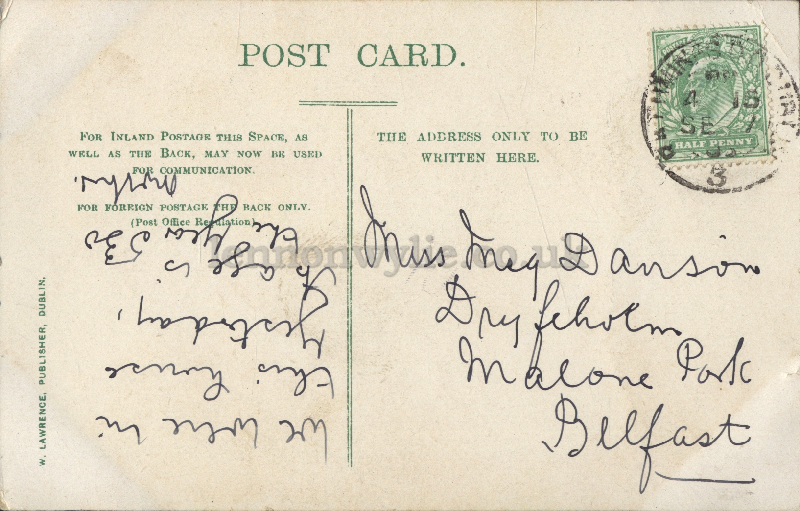 POST CARD.
FOR INLAND POSTAGE THIS SPACE, AS
WELL AS THE BACK, MAY NOW BE USED
FOR COMMUNICATION.
FOR FOREIGN POSTAGE THE BACK ONLY.
(Post Office Regulation).
THE ADDRESS ONLY TO BE
WRITTEN HERE.
HALF PENNY
4 15
SE 7
3
Miss Meg Davison
Dryfeholm
Malone Park
Belfast
We were in
this house
yesterday,
age is
the year
W. LAWRENCE, PUBLISHER, DUBLIN.
lennonwylie.co.uk